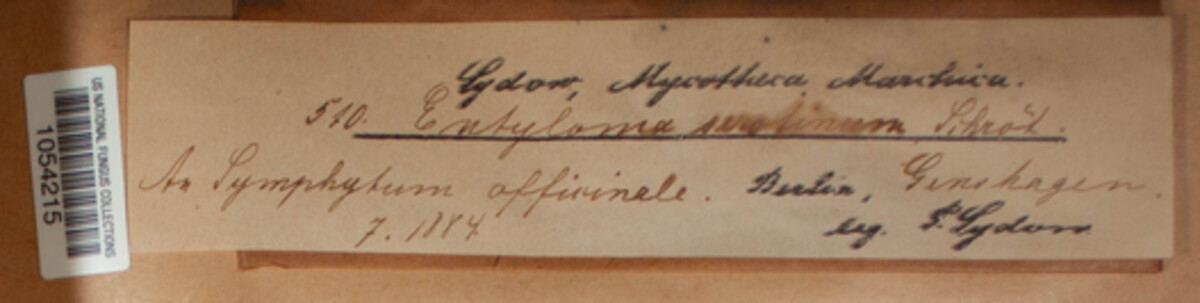 US NATIONAL FUNGUS COLLECTIONS
1054215
Sydow, Mycotheca Marchica.
510. Entyloma serotinum Schröt.
An Symphytum officinale. Berlin, Genshagen.
7. 1884 leg. P. Sydow